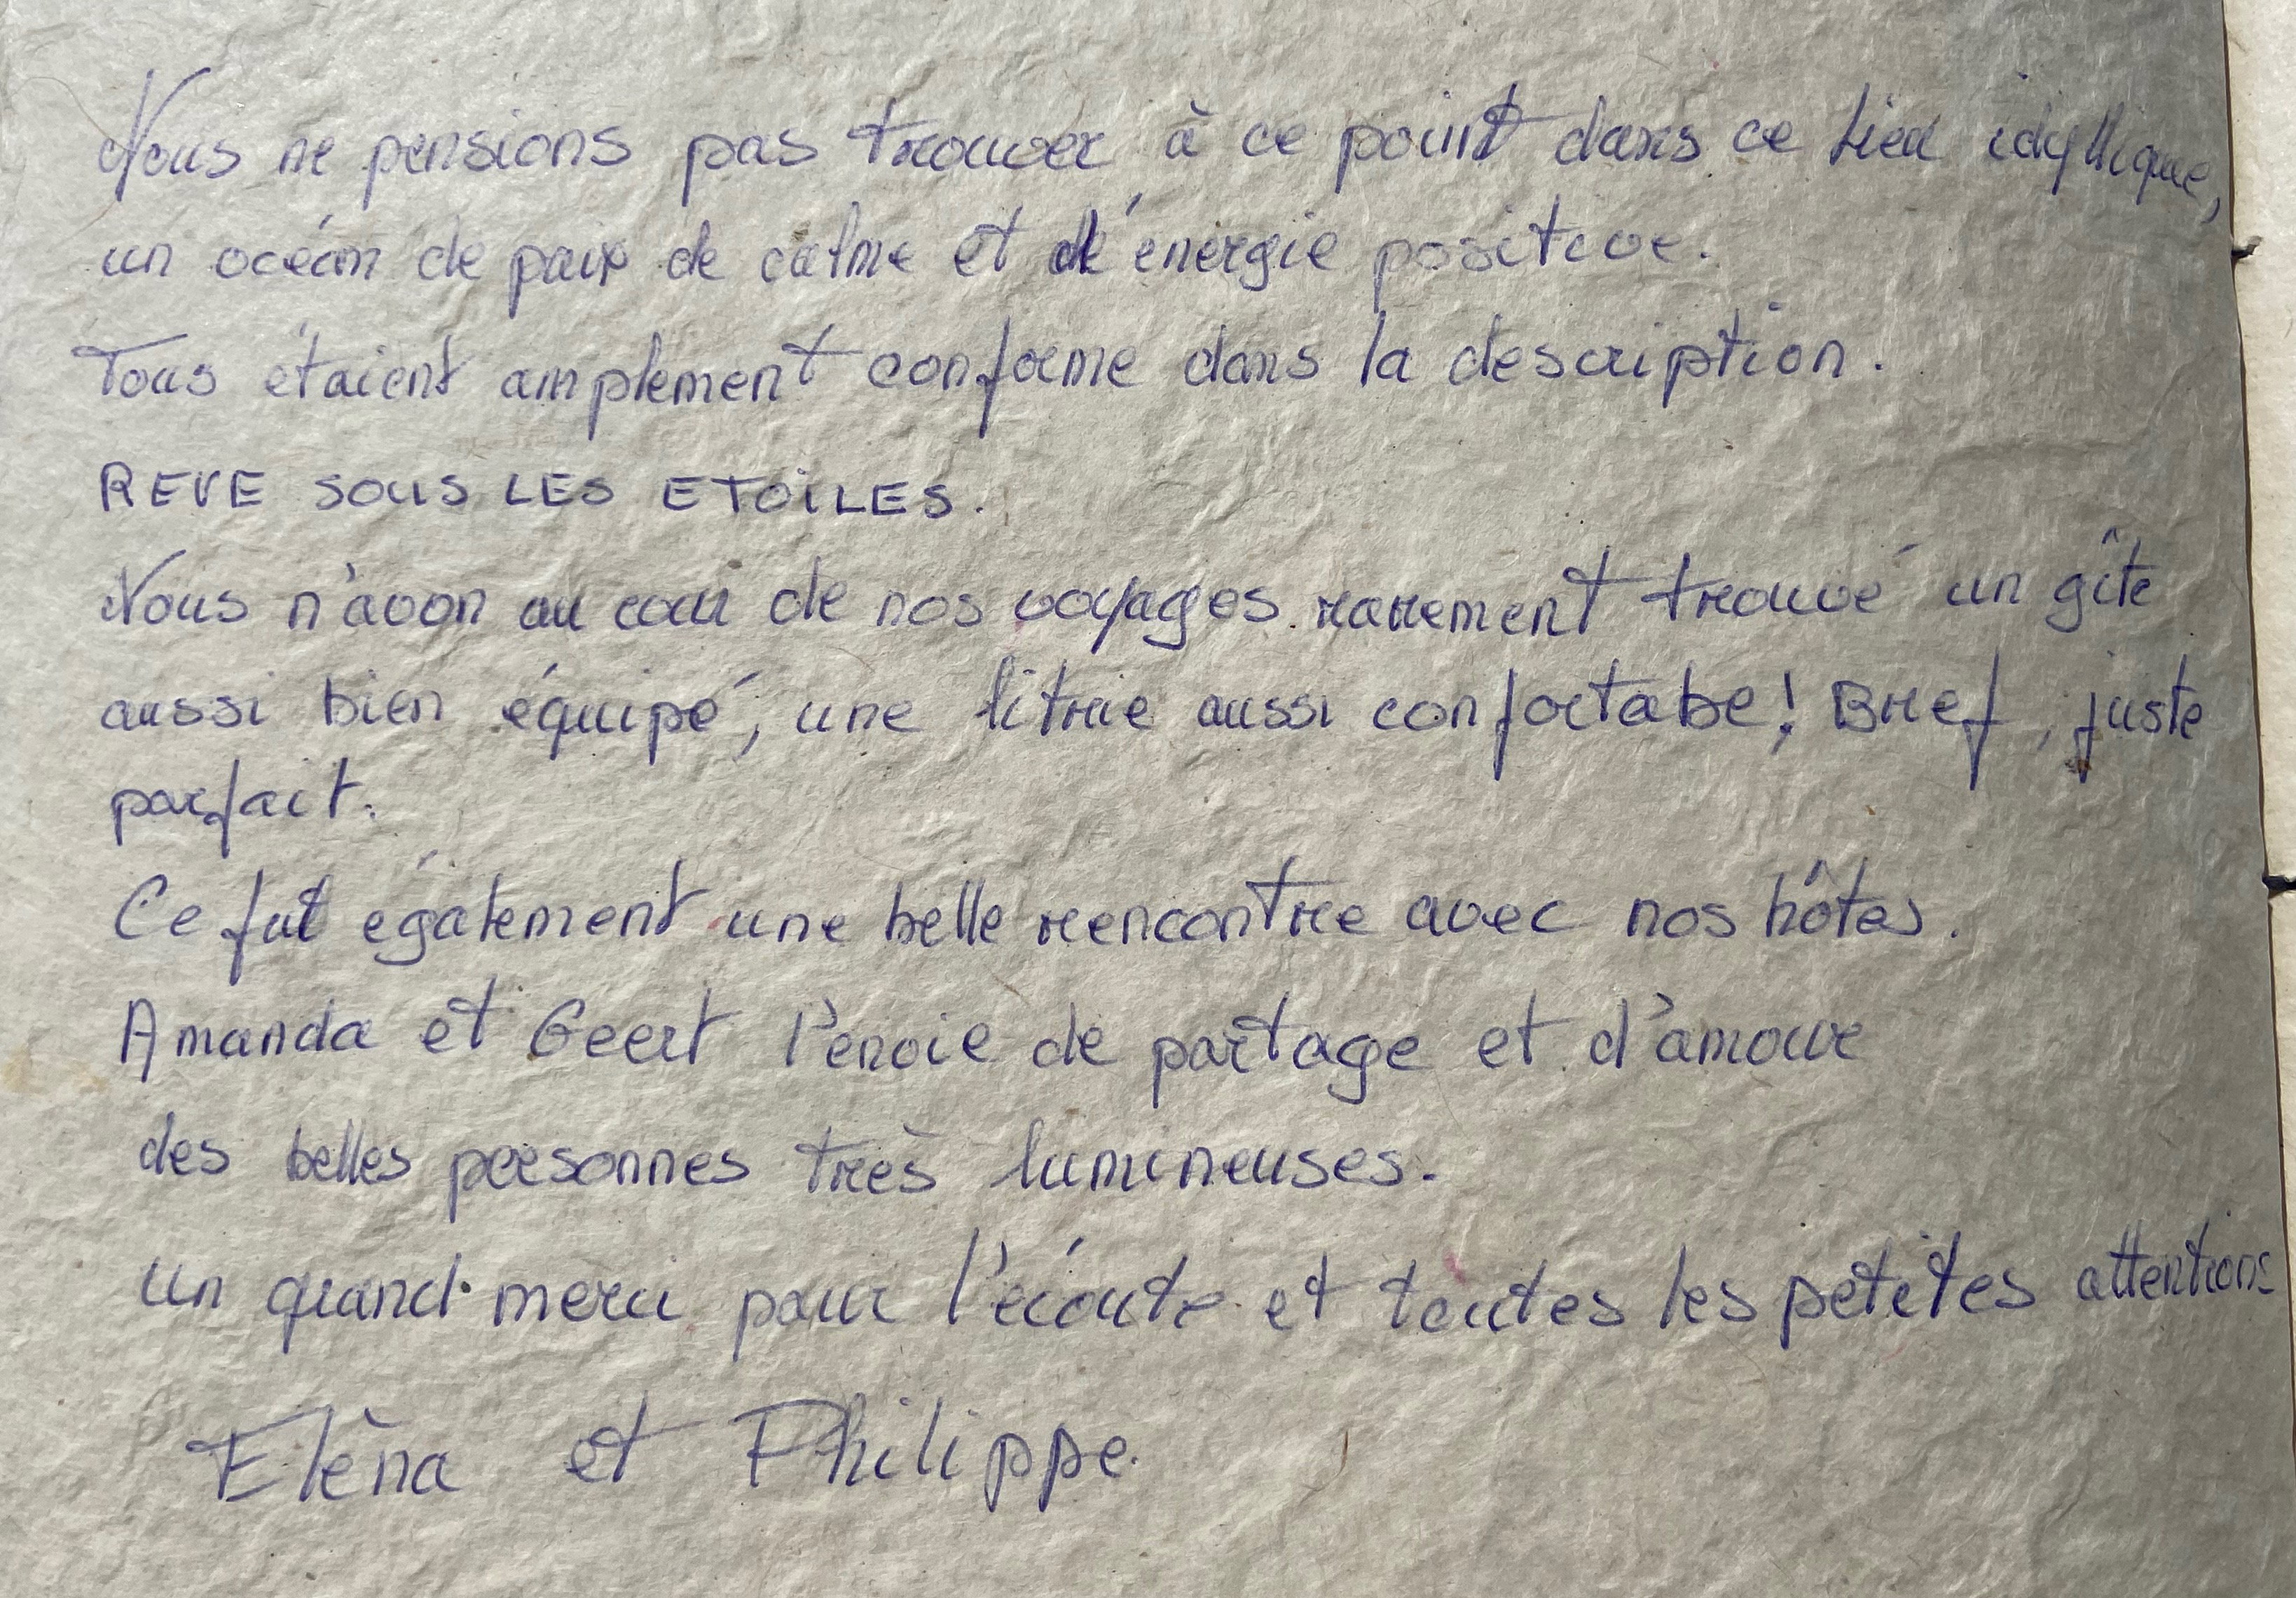 Nous ne pensions pas trouver à ce point dans ce lieu idyllique,
un océan de paix de calme et d'énergie positive.
Tous étaient amplement conforme dans la description.
REVE SOUS LES ETOILES.
Nous n'avon au cour de nos voyages rarement trouvé un gîte
aussi bien équipé, une litrie aussi confortabe! Bref, juste
parfait.
Ce fut également une belle rencontre avec nos hôtes.
Amanda et Geert l'envie de partage et d'amour
des belles personnes très lumineuses.
un quand merci pour l'écoute et toutes les petites attentions
Elèna et Philippe.